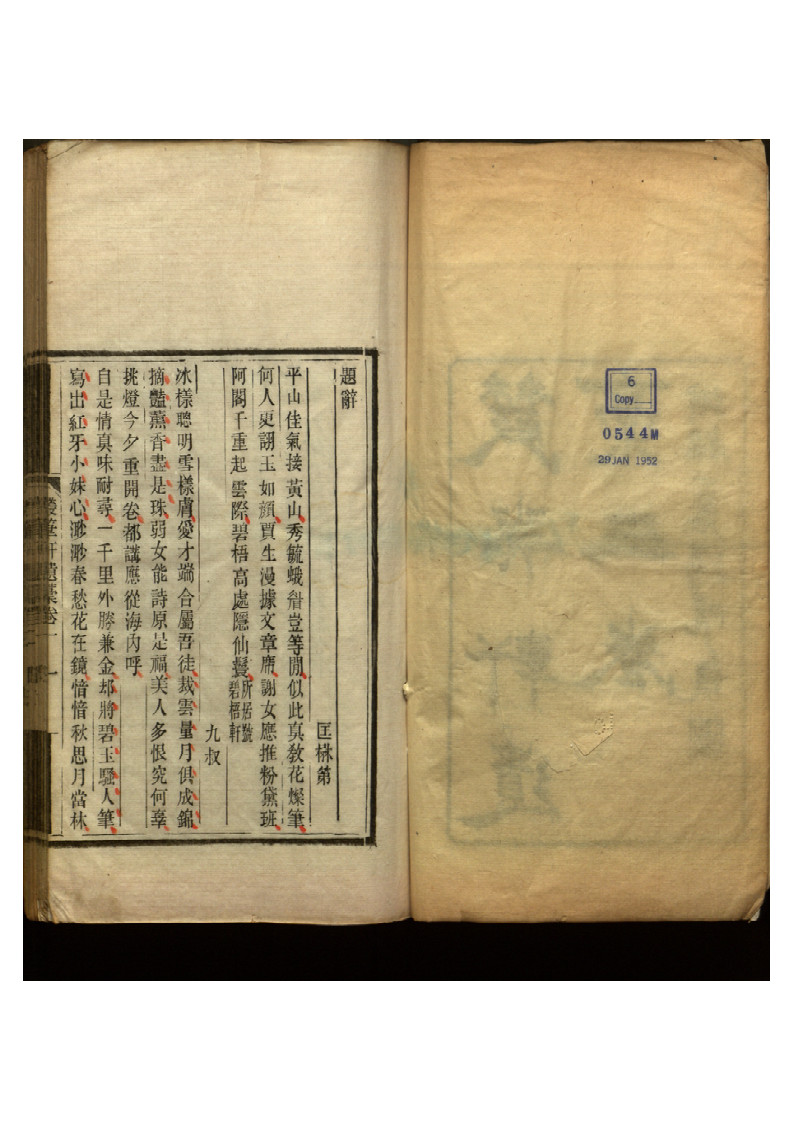 6
Copy
0544M
29 JAN 1952
題辭
匡楙第
平山佳氣接黃山秀毓蛾眉豈等閒似此真教花燦筆
何人更詡玉如顏賈生漫據文章席謝女應推粉黛班
阿閣千重起雲際碧梧高處隱仙鬟所居號碧梧軒
九叔
冰樣聰明雪樣膚愛才端合屬吾徒裁雲量月俱成錦
摘豔薰香盡是珠弱女能詩原是福美人多恨究何辜
挑燈今夕重開卷都講應從海內呼
自是情真味耐尋一千里外勝兼金却將碧玉騷人筆
寫出紅牙小妹心渺渺春愁花在鏡愔愔秋思月當林
軒遺稾卷一